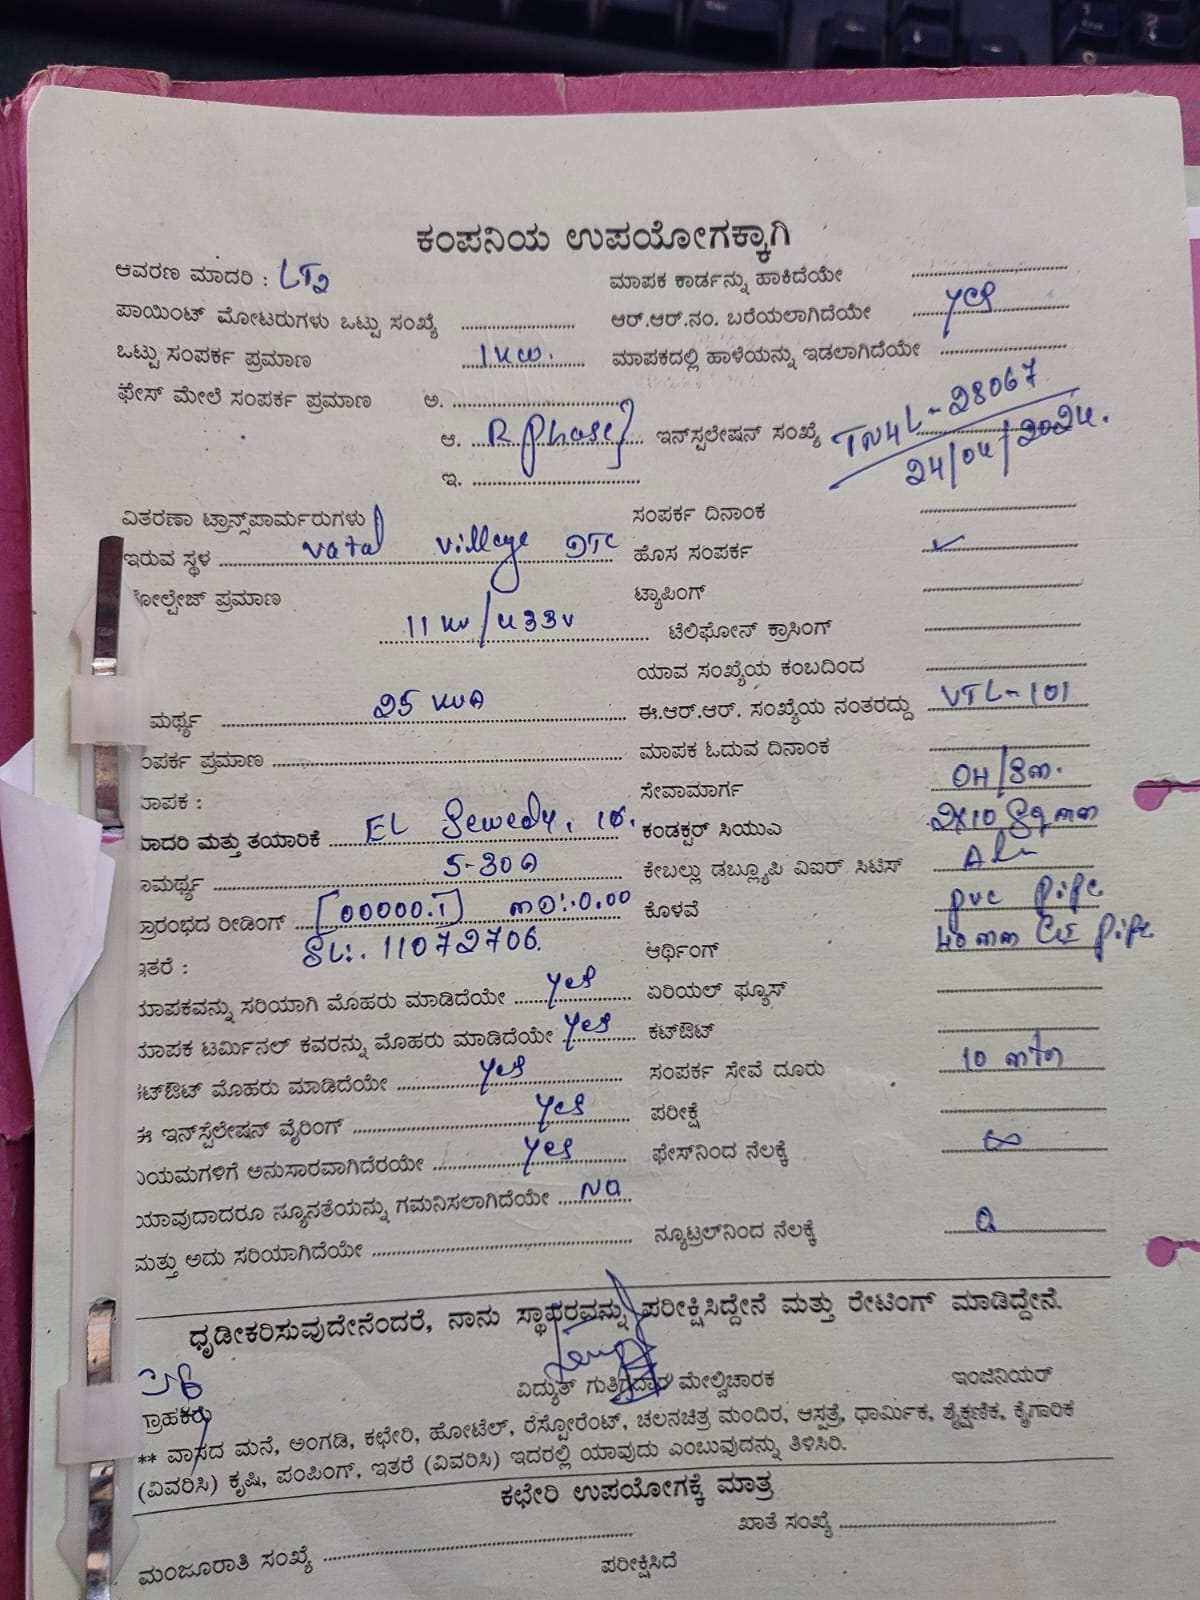 ಕಂಪನಿಯ ಉಪಯೋಗಕ್ಕಾಗಿ
ಆವರಣ ಮಾದರಿ : LT2
ಮಾಪಕ ಕಾರ್ಡನ್ನು ಹಾಕಿದೆಯೇ
ಪಾಯಿಂಟ್ ಮೋಟರುಗಳು ಒಟ್ಟು ಸಂಖ್ಯೆ
ಆರ್.ಆರ್.ನಂ. ಬರೆಯಲಾಗಿದೆಯೇ yes
ಒಟ್ಟು ಸಂಪರ್ಕ ಪ್ರಮಾಣ 1kw.
ಮಾಪಕದಲ್ಲಿ ಹಾಳೆಯನ್ನು ಇಡಲಾಗಿದೆಯೇ
ಫೇಸ್ ಮೇಲೆ ಸಂಪರ್ಕ ಪ್ರಮಾಣ ಅ.
ಆ. R phase}
ಇನ್‌ಸ್ಪಲೇಷನ್ ಸಂಖ್ಯೆ TN4L-28067
24/04/2024.
ಇ.
ವಿತರಣಾ ಟ್ರಾನ್ಸ್‌ಪಾರ್ಮರುಗಳು
ಸಂಪರ್ಕ ದಿನಾಂಕ
ಇರುವ ಸ್ಥಳ vatal village DTC
ಹೊಸ ಸಂಪರ್ಕ ✓
ೋಲ್ಟೇಜ್ ಪ್ರಮಾಣ
ಟ್ಯಾಪಿಂಗ್
11 kv/433v
ಟೆಲಿಫೋನ್ ಕ್ರಾಸಿಂಗ್
ಯಾವ ಸಂಖ್ಯೆಯ ಕಂಬದಿಂದ
ಮರ್ಥ್ಯ 25 KVA
ಈ.ಆರ್.ಆರ್. ಸಂಖ್ಯೆಯ ನಂತರದ್ದು VTL-101
ಂಪರ್ಕ ಪ್ರಮಾಣ
ಮಾಪಕ ಓದುವ ದಿನಾಂಕ
ಾಪಕ :
ಸೇವಾಮಾರ್ಗ OH/Sm.
ಾದರಿ ಮತ್ತು ತಯಾರಿಕೆ EL Sewedy, 1ø.
ಕಂಡಕ್ಟರ್ ಸಿಯುಎ 2X10 Sqmm
ಾಮರ್ಥ್ಯ 5-30A
ಕೇಬಲ್ಲು ಡಬ್ಲ್ಯೂಪಿ ವಿಐರ್ ಸಿಟಿಸ್
ಾರಂಭದ ರೀಡಿಂಗ್ [00000.1] MD:-0.00
ಕೊಳವೆ pvc pipe
SL:. 11072706.
ಇತರೆ :
ಆರ್ಥಿಂಗ್ 40mm GI pipe
ಮಾಪಕವನ್ನು ಸರಿಯಾಗಿ ಮೊಹರು ಮಾಡಿದೆಯೇ yes
ಏರಿಯಲ್ ಫ್ಯೂಸ್
ಮಾಪಕ ಟರ್ಮಿನಲ್ ಕವರನ್ನು ಮೊಹರು ಮಾಡಿದೆಯೇ yes
ಕಟ್‌ಔಟ್
ಕಟ್‌ಔಟ್ ಮೊಹರು ಮಾಡಿದೆಯೇ yes
ಸಂಪರ್ಕ ಸೇವೆ ದೂರು 10 mtr
ಈ ಇನ್‌ಸ್ಟಲೇಷನ್ ವೈರಿಂಗ್ yes
ಪರೀಕ್ಷೆ
ನಿಯಮಗಳಿಗೆ ಅನುಸಾರವಾಗಿದೆರಯೇ yes
ಫೇಸ್‌ನಿಂದ ನೆಲಕ್ಕೆ ∞
ಯಾವುದಾದರೂ ನ್ಯೂನತೆಯನ್ನು ಗಮನಿಸಲಾಗಿದೆಯೇ No
ಮತ್ತು ಅದು ಸರಿಯಾಗಿದೆಯೇ
ನ್ಯೂಟ್ರಲ್‌ನಿಂದ ನೆಲಕ್ಕೆ
ಧೃಡೀಕರಿಸುವುದೇನೆಂದರೆ, ನಾನು ಸ್ಥಾಪರವನ್ನು ಪರೀಕ್ಷಿಸಿದ್ದೇನೆ ಮತ್ತು ರೇಟಿಂಗ್ ಮಾಡಿದ್ದೇನೆ.
ಗ್ರಾಹಕರು ವಿದ್ಯುತ್ ಗುತ್ತಿಗೆದಾರ ಮೇಲ್ವಿಚಾರಕ ಇಂಜಿನಿಯರ್
** ವಾಸದ ಮನೆ, ಅಂಗಡಿ, ಕಛೇರಿ, ಹೋಟೆಲ್, ರೆಸ್ಟೋರೆಂಟ್, ಚಲನಚಿತ್ರ ಮಂದಿರ, ಆಸ್ಪತ್ರೆ, ಧಾರ್ಮಿಕ, ಶೈಕ್ಷಣಿಕ, ಕೈಗಾರಿಕ
(ವಿವರಿಸಿ) ಕೃಷಿ, ಪಂಪಿಂಗ್, ಇತರೆ (ವಿವರಿಸಿ) ಇದರಲ್ಲಿ ಯಾವುದು ಎಂಬುವುದನ್ನು ತಿಳಿಸಿರಿ.
ಕಛೇರಿ ಉಪಯೋಗಕ್ಕೆ ಮಾತ್ರ
ಖಾತೆ ಸಂಖ್ಯೆ
ಮಂಜೂರಾತಿ ಸಂಖ್ಯೆ
ಪರೀಕ್ಷಿಸಿದೆ